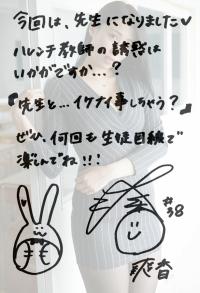 今回は、先生になりました♥
ハレンチ教師の誘惑は
いかがですか…?
『先生と…イケナイ事しちゃう?』
ぜひ、何回も生徒目線で
楽しんでね!!!
#38